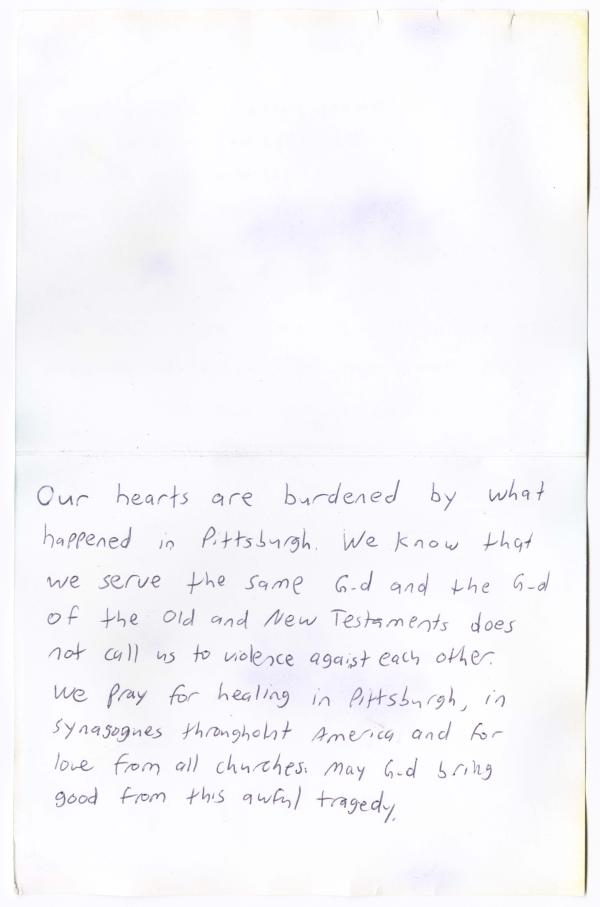 Our hearts are burdened by what
happened in Pittsburgh. We know that
we serve the same G-d and the G-d
of the Old and New Testaments does
not call us to violence agaist each other.
We pray for healing in Pittsburgh, in
synagogues throughout America and for
love from all churches. May G-d bring
good from this awful tragedy.